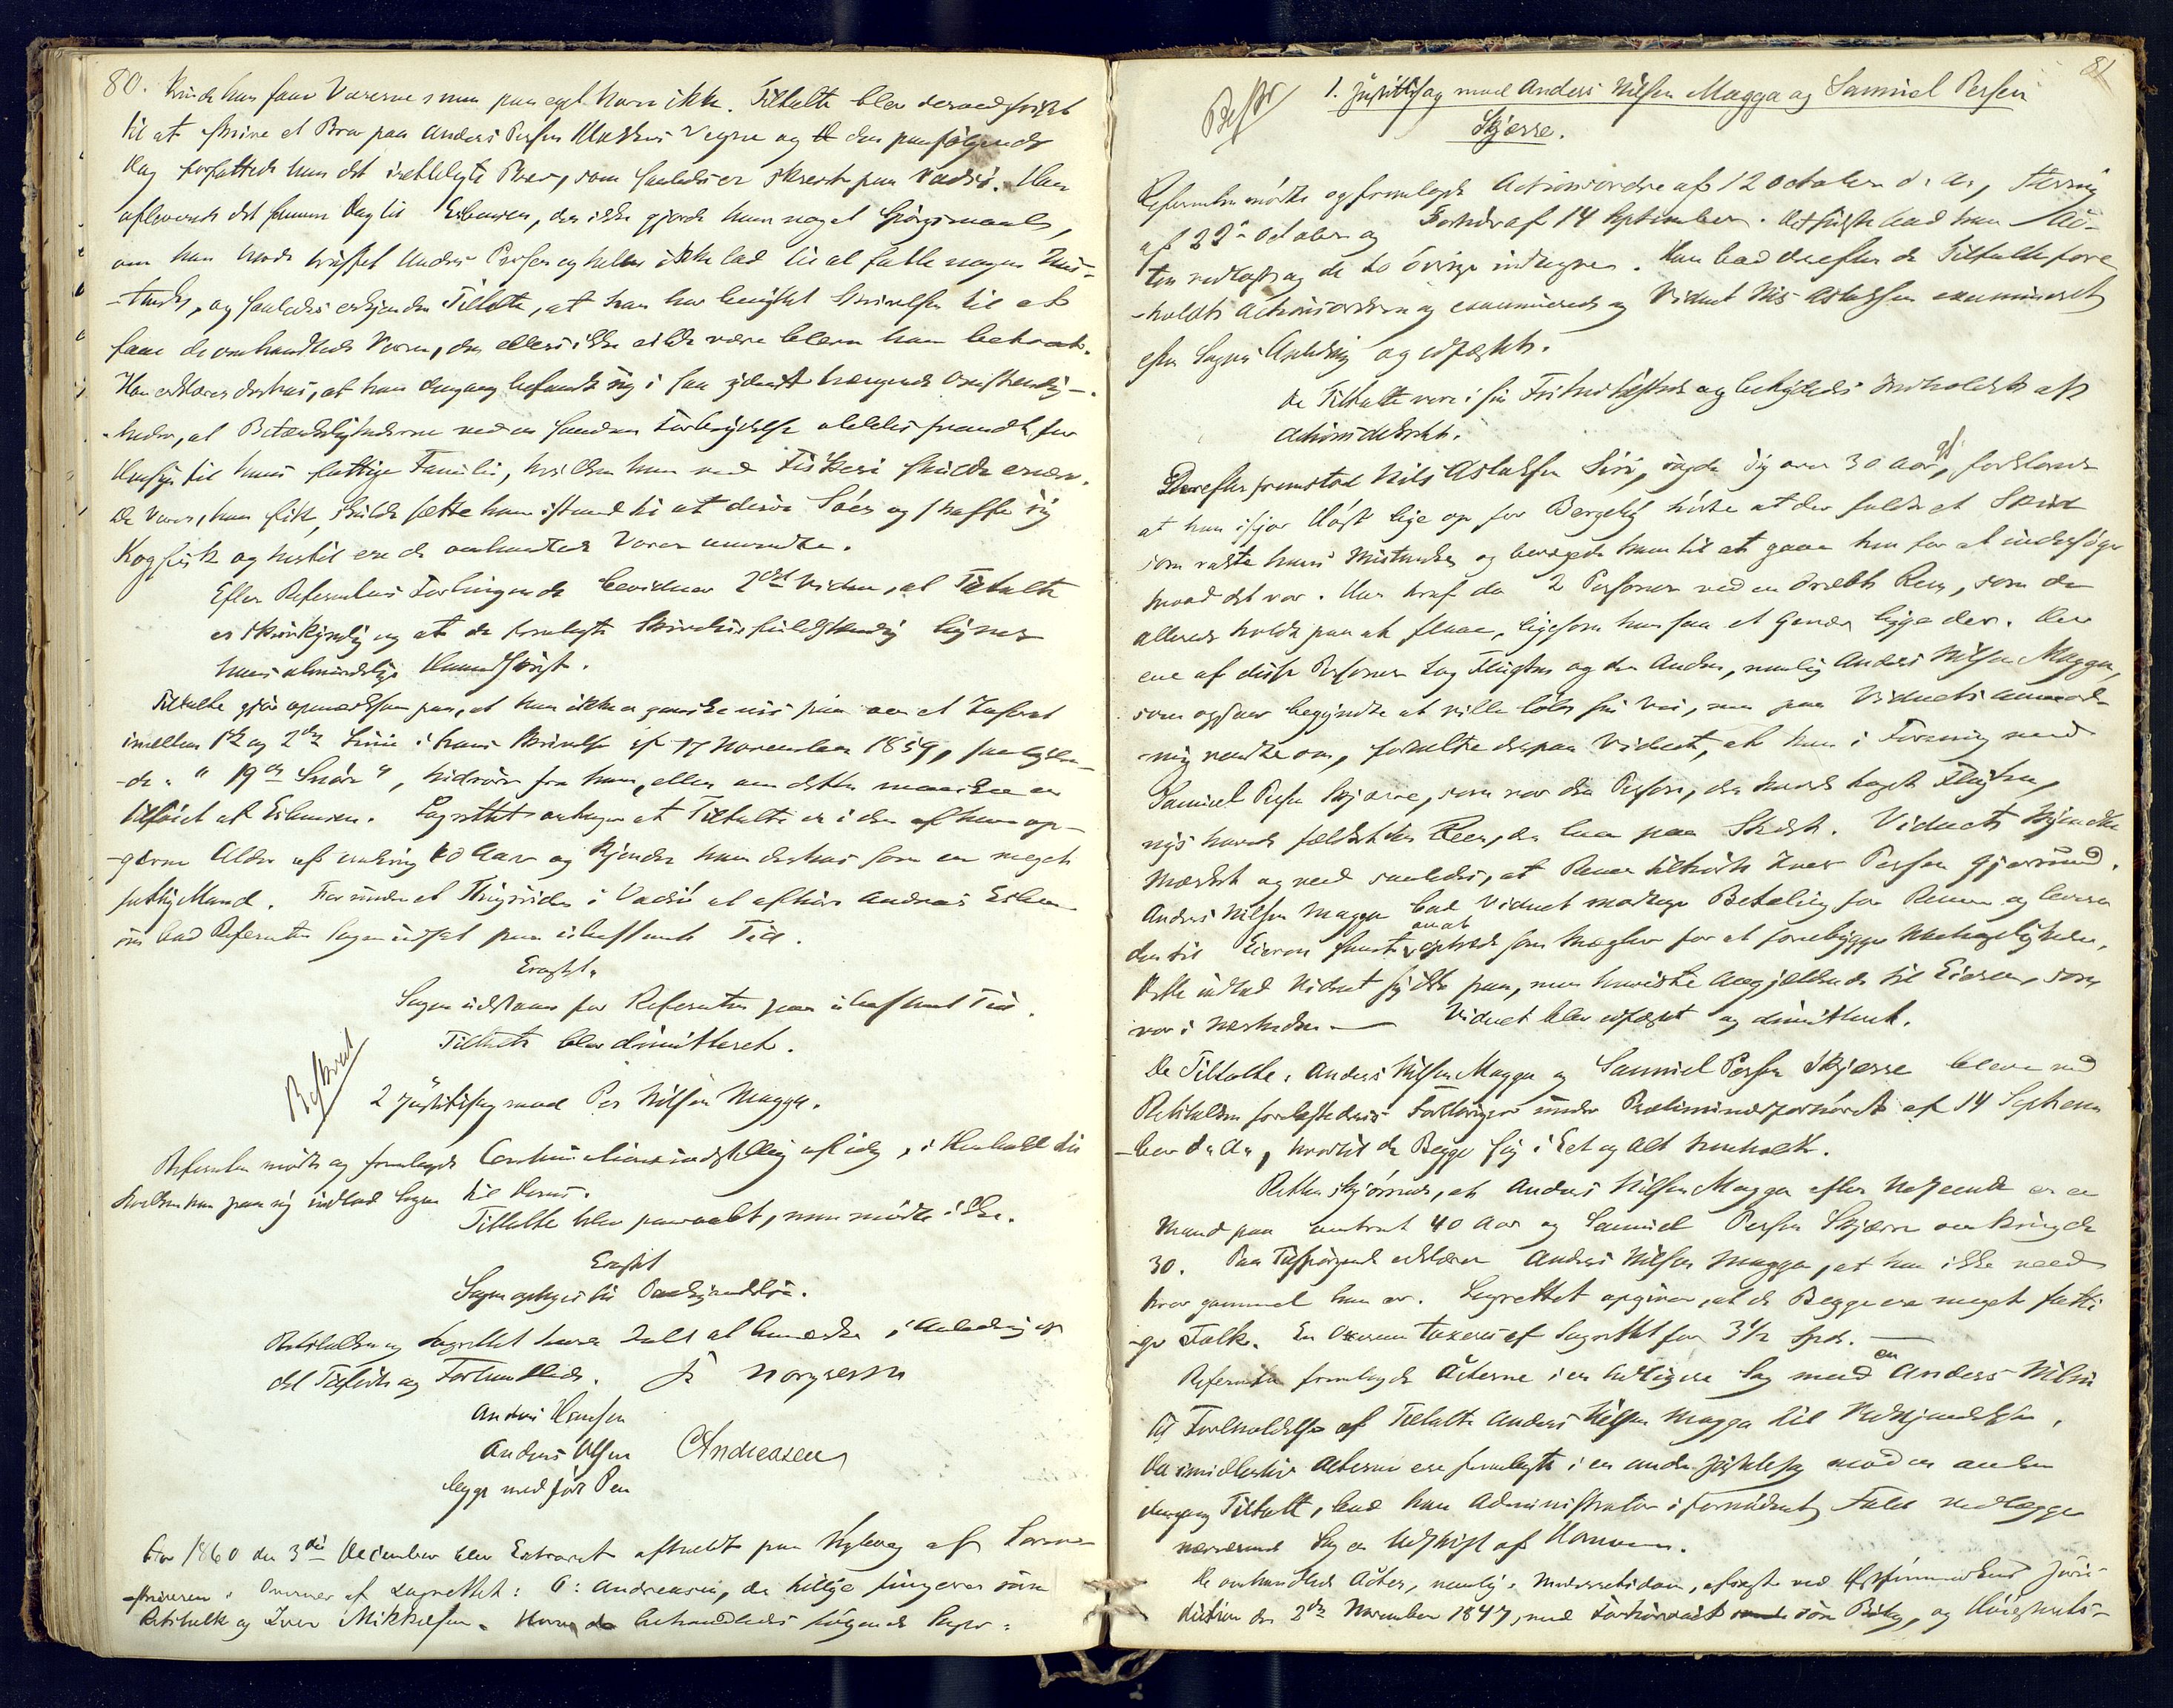 80.
kunde han faae Varerne, men paa eget Navn ikke. Tiltalte blev derved fristet
til at skrive et Brev paa Anders Persen Vegne og den paafølgende
Dag forfattede han det irettelagte Brev, som saaledes er skrevet paa Vadsø. Han
afleverede det samme Dag til Esbensen, der ikke gjorde ham noget Spørgsmaal,
om han havde truffet Anders Persen og heller ikke lod til at fatte nogen Mis-
-tanke, og saaledes erkjender Tiltalte, at han har benyttet Skrivelsen til at
faae de omhandlede Varer, der ellers ikke vilde være blevne ham betroet.
Han erklærer derhos, at han dengang befandt sig i saa yderst trængende Omstændig-
-heder, at Betænkelighederne ved en saadan Forbrydelse aldeles svandt for
Hensyn til hans fattige Familie, hvilken han ved Fiskeri skulde ernære.
De Varer, han fik, skulde sætte ham istand til at og skaffe sig
Kogfisk og hertil ere de omhandlede Varer anvendte.
Efter Referentens Forlangende bevidner 2det Vidne, at Tiltalte
er skrivkyndig og at de fremlagte Skrivelser fuldstændig ligner
hans almindelige Haandskrift.
Tiltalte gjør opmærksom paa, at han ikke er ganske vis paa om et Indført
imellem 1ste og 2den Linie i hans Skrivelse af 17 November 1859, saalyden-
-de: " 19de ", hidrører fra ham, eller om dette maaskee er
tilføiet af Esbensen. Lagrettet antager at Tiltalte er i den af ham op-
-givne Alder af omkring 40 Aar og kjender ham derhos som en meget
fattig Mand. For under et Thingvidne i Vadsø at afhøre Andreas Esben-
sen bad Referenten Sagen udsat paa ubestemt Tid.
Eragtet.
Sagen udstaaer for Referenten paa ubestemt Tid.
Tiltalte blev dimitteret.
Beskrevet
2 Justitssag mod Per Nilsen Magga.
Referenten mødte og fremlagde Continuationsindstilling af idag, i Henhold til
hvilken han paa ny indlod Sagen til Doms.
Tiltalte blev paaraabt, men mødte ikke.
Eragtet
Sagen optages til Paakjendelse.
Retsholdet og Lagrettet havde Intet at bemærke i Anledning af
det Tilførte og Forhandlede.
Anders Hansen
Anders Olsen C Andreasen
begge med ført Pen
Aar 1860 den 3die December blev Extraret afholdt paa Nyborg af Soren-
-skriveren i Overvær af Lagrettet: C. Andreasen, der tillige fungerer som
Retstolk og Iver Mikkelsen. Hvorda behandledes følgende Sager:
81
Beskr
1. Justitssag mod Anders Nilsen Magga og Samuel Persen
Skjærre.
Referenten mødte og fremlagde Actionsordre af 12 October d. A., Stevning
af 22de October og Forhør af 14 September. Det første bad han Ac-
ten vedlagt og de to øvrige indtagne. Han bad derefter de Tiltalte fore-
-holdt Actionsordren og examinerede og Vidnet Nils Aslaksen examineret
efter Sagens Anledning og edfæstet.
De Tiltalte vare i fri Tilstand tilstede og betydedes Indholdet af
Actionsdekretet.
Derefter fremstod Nils Aslaksen Siri, sagde sig over 30 Aar gl.,
at han ifjor Høst lige op for Bergeby hørte at der faldt et Skud
som vakte hans Mistanke og bevægede ham til at gaae hen for at undersøge
hvad det var. Han traf da 2 Personer ved en dræbt Reen, som de
allerede holdt paa at flaae, ligesom han saa et Gevær ligge der. Den
ene af disse Personer tog Flugten og den Anden, nemlig Anders Nilsen Magga,
som ogsaa begyndte at ville løbe sin Vei, men paa Vidnets anmod-
-ning vendte om, fortalte derpaa Vidnet, at han i Forening med
Samuel Persen Skjærre, som var den Person, der havde taget Flugten,
nys havde fældet den Reen, der laae paa Stedet. Vidnet kjendte
Mærket og veed saaledes, at Renen tilhørte Iver Persen Gjermund.
Anders Nilsen Magga bad Vidnet modtage Betaling for Renen og levere
den til Eieren samt at optræde som Mægler for at forebygge Ubehageligheder.
Dette indlod Vidnet sig ikke paa, men henviste Angjældende til Eieren, som
var i Nærheden. — Vidnet blev edfæstet og dimitteret.
De Tiltalte: Anders Nilsen Magga og Samuel Persen Skjærre bleve ved
Retstolken forelæste deres Forklaringer under Præliminærforhøret af 14 Septem-
-ber d. A., hvortil de Begge sig i Eet og Alt henholdt.
Retten skjønnede, at Anders Nilsen Magga efter Udseende er en
Mand paa omtrent 40 Aar og Samuel Persen Skjærre omkring de
30. Paa Tilspørgende erklærer Anders Nilsen Magga, at han ikke veed
hvor gammel han er. Lagrettet opgiver, at de Begge ere meget fatti-
-ge Folk. En taxeres af Lagrettet for 3 1/2 Spd. —
Referenten fremlagde Acterne i en tidligere Sag mod en Anders Nilsen
til Foreholdelse af Tiltalte Anders Nilsen Magga til Vedkjendelse.
Da imidlertid Acterne ere fremlagte i en anden Justitssag mod en anden
dengang Tiltalt, bad han Administrator i fornødent Fald vedlægge
nærværende Sag en Udskrift af Dommen.
De omhandlede Acter, nemlig: Underretsdom, afsagt ved Østfinmarkens Juris-
diction den 2den November 1847, med Forhørsact som Bilag, og Høiesterets-